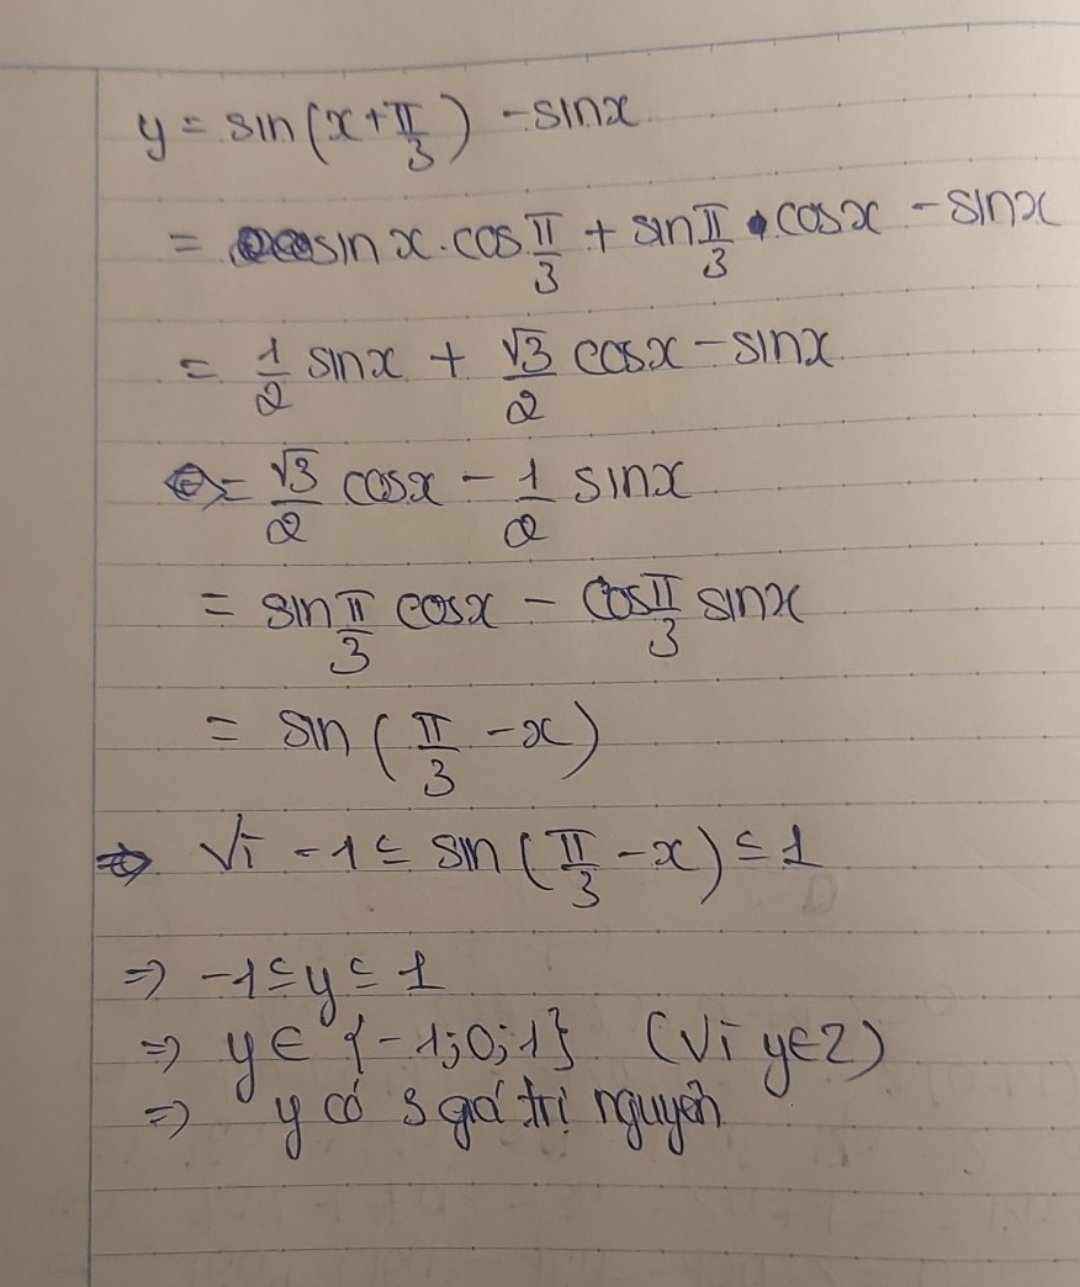 y = sin(x + π/3) - sinx
= sin x . cos π/3 + sin π/3 . cosx - sinx
= 1/2 sinx + √3/2 cosx - sinx
= √3/2 cosx - 1/2 sinx
= sin π/3 cosx - cos π/3 sinx
= sin (π/3 - x)
Vì -1 ≤ sin (π/3 - x) ≤ 1
=> -1 ≤ y ≤ 1
=> y ∈ {-1; 0; 1} (Vì y∈Z)
=> y có 3 giá trị nguyên